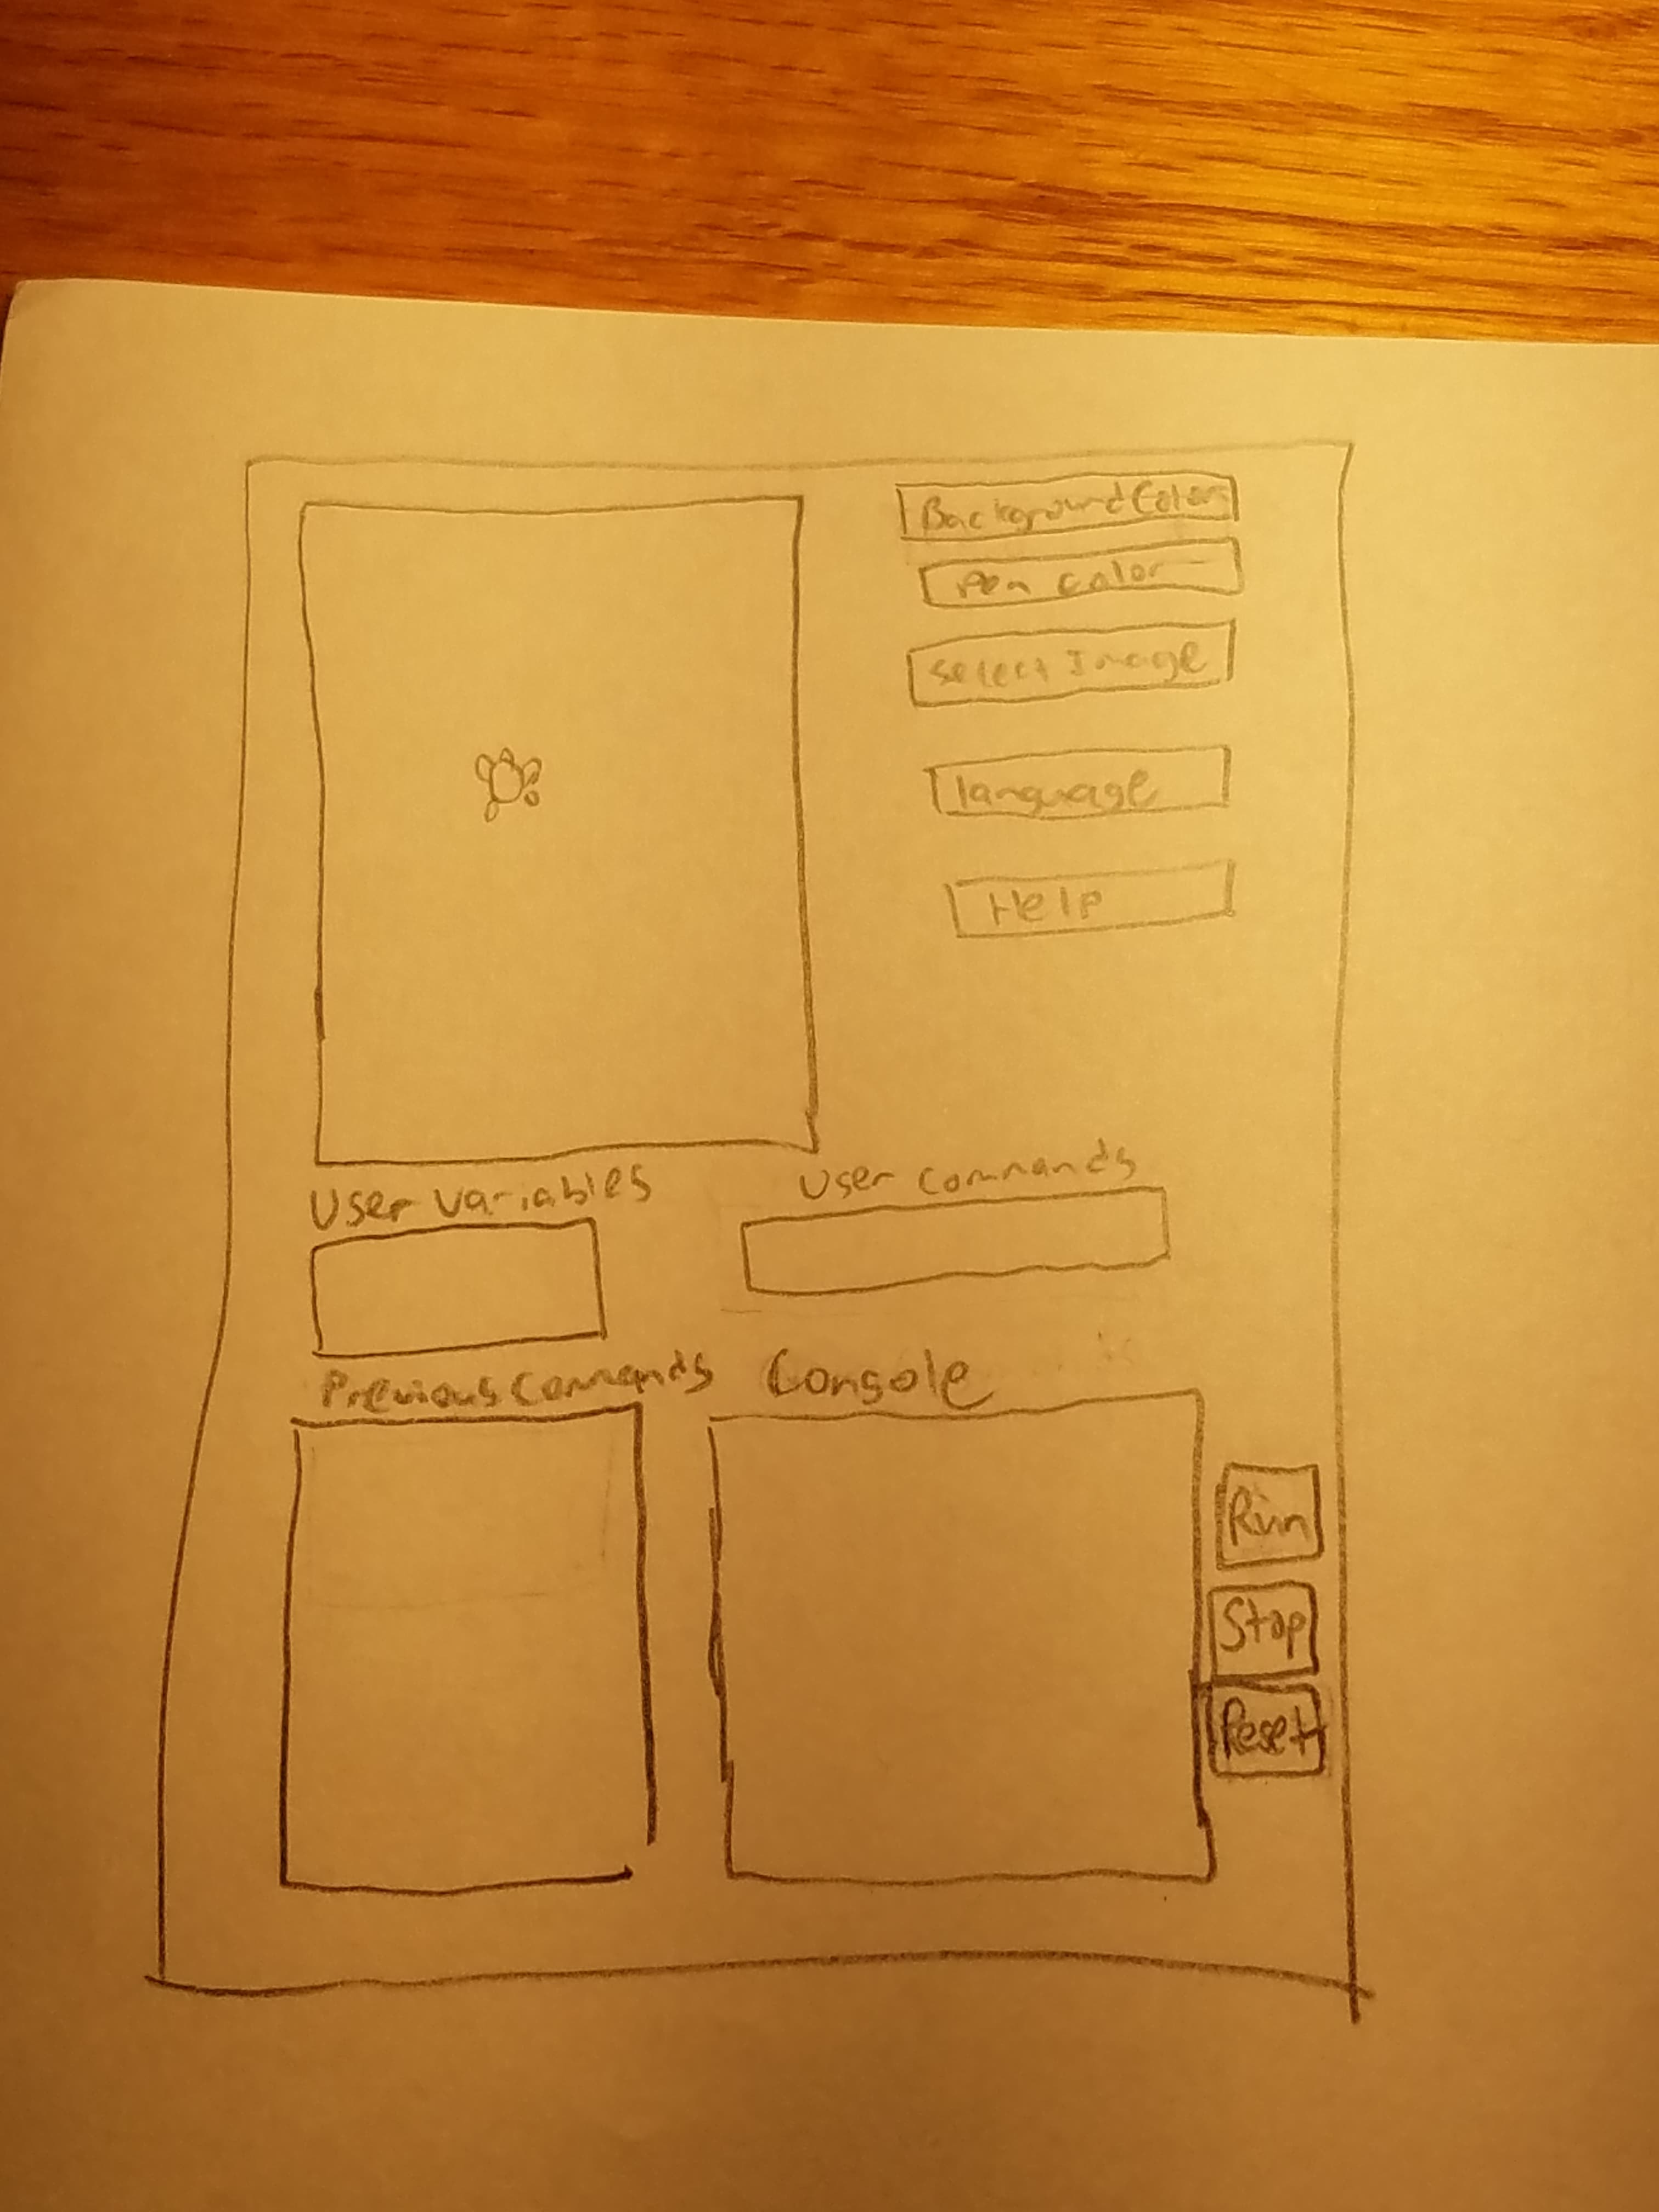 Background Color
Pen color
Select Image
language
Help
User Variables
User Commands
Previous Commands
Console
Run
Stop
Reset